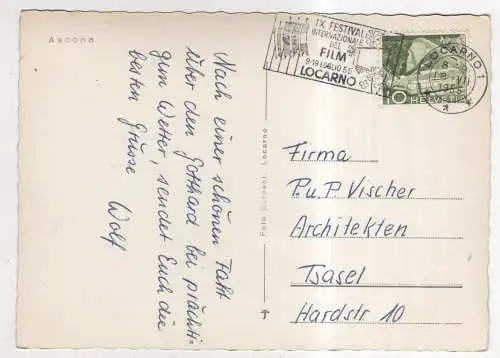 Ascona
Nach einer schönen Fahrt
über den Gotthard bei prächti-
gem Wetter, sendet Euch die
besten Grüsse
Wolf
IX FESTIVAL
INTERNAZIONALE
DEL
FILM
LOCARNO
LOCARNO 1
1955
10 HELVETIA
Firma
P. u. P. Vischer
Architekten
Basel
Hardstr. 10
Locarno